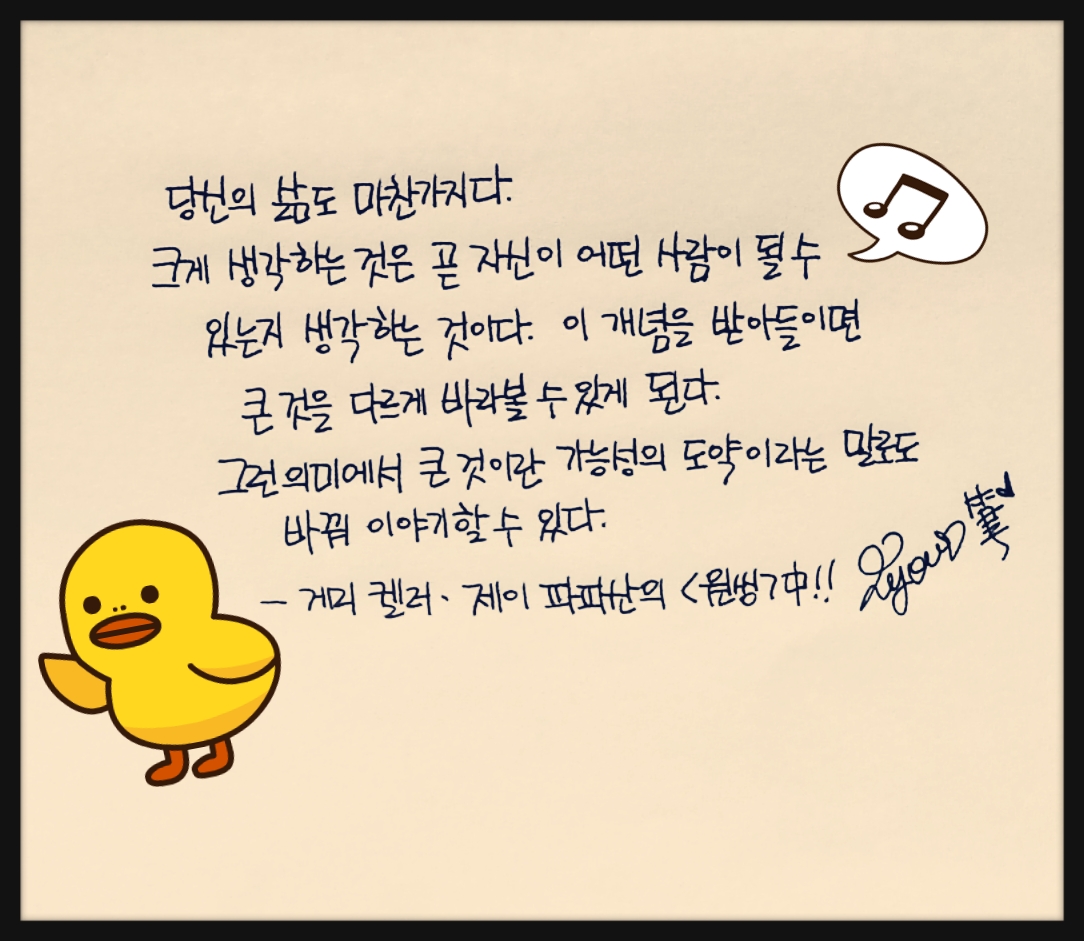 당신의 삶도 마찬가지다.
크게 생각하는 것은 곧 자신이 어떤 사람이 될 수
있는지 생각하는 것이다. 이 개념을 받아들이면
큰 것을 다르게 바라볼 수 있게 된다.
그런 의미에서 큰 것이란 가능성의 도약이라는 말로도
바꿔 이야기할 수 있다.
- 게리 켈러·제이 파파산의 <원씽>中!!